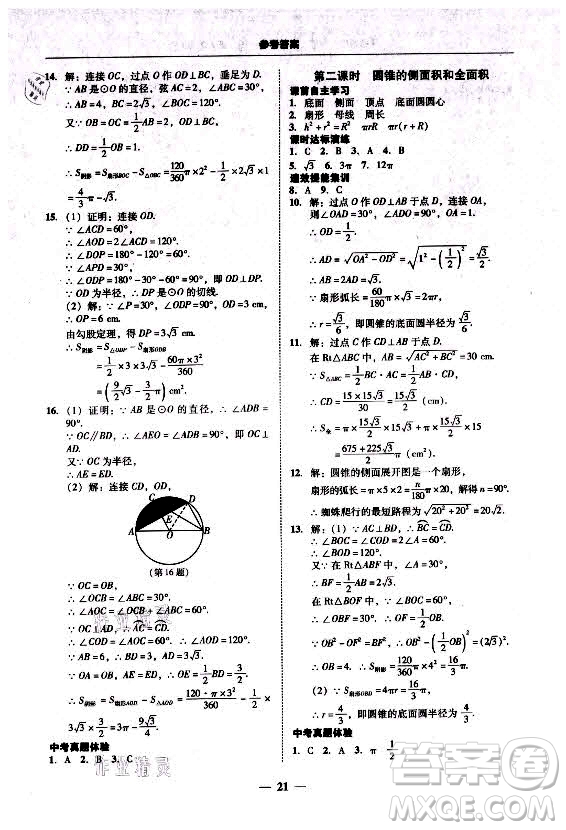 参考答案
14. 解：连接 OC，过点 O 作 OD⊥BC，垂足为 D.
∵ AB 是⊙O 的直径，弦 AC=2，∠ABC=30°，
∴ AB=4，∠AOC=60°，∠BOC=120°.
又∵ OB=OC=\frac{1}{2}AB=2，
∴ DD=\frac{1}{2}OB=1.
∴ S阴影=S扇形BOC-S△BOC=\frac{120}{360}π×2²-\frac{1}{2}×2\sqrt{3}×1=
\frac{4}{3}π-\sqrt{3}.
15. (1) 证明：连接 OD.
∵ ∠ACD=60°，
∴ ∠AOD=2∠ACD=120°.
∴ ∠DOP=180°-120°=60°.
∵ ∠APD=30°，
∴ ∠ODP=180°-30°-60°=90°，即 OD⊥DP.
∵ OD 为半径，∴ DP 是⊙O 的切线.
(2) 解：∵ ∠P=30°，∠ODP=90°，OD=3 cm，
∴ OP=6 cm.
由勾股定理，得 DP=3\sqrt{3} cm.
∴ S阴影=S△ODP-S扇形ODB
=\frac{1}{2}×3×3\sqrt{3}-\frac{60π×3²}{360}
=(\frac{9}{2}\sqrt{3}-\frac{3}{2}π) cm².
16. (1) 证明：∵ AB 是⊙O 的直径，∴ ∠ADB=
90°.
∵ OC∥BD，∴ ∠AEO=∠ADB=90°，即 OC⊥
AD.
又∵ OC 为半径，
∴ AE=ED.
(2) 解：连接 CD，OD.
C
D
E
A
O
B
(第 16 题)
∵ OC=OB，
∴ ∠OCB=∠ABC=30°.
∴ ∠AOC=∠OCB+∠ABC=60°.
∵ OC⊥AD，∴ \overset{⌒}{AC}=\overset{⌒}{CD}.
∴ ∠COD=∠AOC=60°.
∴ ∠AOD=120°.
∵ AB=6，∴ BD=3，AD=3\sqrt{3}.
∵ OA=OB，AE=ED，∴ OE=\frac{1}{2}BD=\frac{3}{2}.
∴ S阴影=S扇形AOD-S△AOD=\frac{120·π×3²}{360}-\frac{1}{2}×
3\sqrt{3}×\frac{3}{2}=3π-\frac{9\sqrt{3}}{4}.
中考真题体验
1. A 2. B 3. C
作业精灵
第二课时 圆锥的侧面积和全面积
课前自主学习
1. 底面 侧面 顶点 底面圆圆心
2. 扇形 母线 周长
3. h²+r²=R² πrR πrR+πr²
课时达标演练
1. C 2. B 3. A 4. B
5. \sqrt{3} 6. 3π 7. 4π
速效提能集训
8. A 9. C
10. 解：过点 O 作 OD⊥AB 于点 D，连接 OA，
则∠OAD=30°，∠ADO=90°，OA=1.
∴ OD=\frac{1}{2}.
∴ AD=\sqrt{OA²-OD²}=\sqrt{1²-(\frac{1}{2})²}=\frac{\sqrt{3}}{2}.
∴ AB=2AD=\sqrt{3}.
∵ 扇形弧长=\frac{60}{180}π×\sqrt{3}=2πr，
∴ r=\frac{\sqrt{3}}{6}，即圆锥的底面圆半径为\frac{\sqrt{3}}{6}.
11. 解：过点 C 作 CD⊥AB 于点 D.
在 Rt△ABC 中，AB=\sqrt{AC²+BC²}=30 cm.
∵ S△ABC=\frac{1}{2}BC·AC=\frac{1}{2}AB·CD，
∴ CD=\frac{15×15\sqrt{3}}{30}=\frac{15\sqrt{3}}{2}(cm).
∴ S表=π×\frac{15\sqrt{3}}{2}×15\sqrt{3}+π×\frac{15\sqrt{3}}{2}×15
=\frac{675+225\sqrt{3}}{2}π(cm²).
12. 解：圆锥的侧面展开图是一个扇形，
扇形的弧长=π×5×2=\frac{n}{180}π×20，解得 n=90°.
∴ 蜘蛛爬行的最短路程为\sqrt{20²+20²}=20\sqrt{2}.
13. 解：(1) ∵ AC⊥BD，∴ \overset{⌒}{BC}=\overset{⌒}{CD}.
∴ ∠BOC=∠COD=2∠A=60°.
∴ ∠BOD=120°.
∵ 在 Rt△ABF 中，∠A=30°，
∴ BF=\frac{1}{2}AB=2\sqrt{3}.
在 Rt△BOF 中，∠BOF=60°，
∴ OF=\frac{1}{2}OB.
∵ OB²-OF²=BF²，∴ OB²-(\frac{1}{2}OB)²=(2\sqrt{3})².
∴ OB=4. ∴ S阴影=\frac{120}{360}π×4²=\frac{16}{3}π.
(2) ∵ S扇形OBD=4πr=\frac{16}{3}π，
∴ r=\frac{4}{3}，即圆锥的底面圆半径为\frac{4}{3}.
中考真题体验
1. C 2. A 3. π \frac{1}{2}
— 21 —